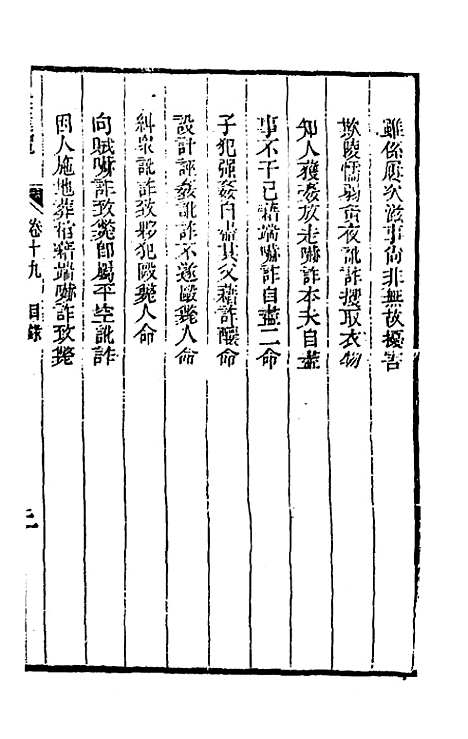 雖係屢次滋事尚非無故擾害
欺陵懦弱奇夜訛詐攫取衣物
知人獲姦放走嚇詐本夫自盡
事不干己藉端嚇詐自盡二命
子犯強姦自盡其父藉詐釀命
設計誣姦訛詐不遂毆斃人命
糾衆訛詐致夥犯毆斃人命
向賊嚇詐致斃卽屬平空訛詐
因人施地葬棺藉端嚇詐致斃
卷十九 目錄